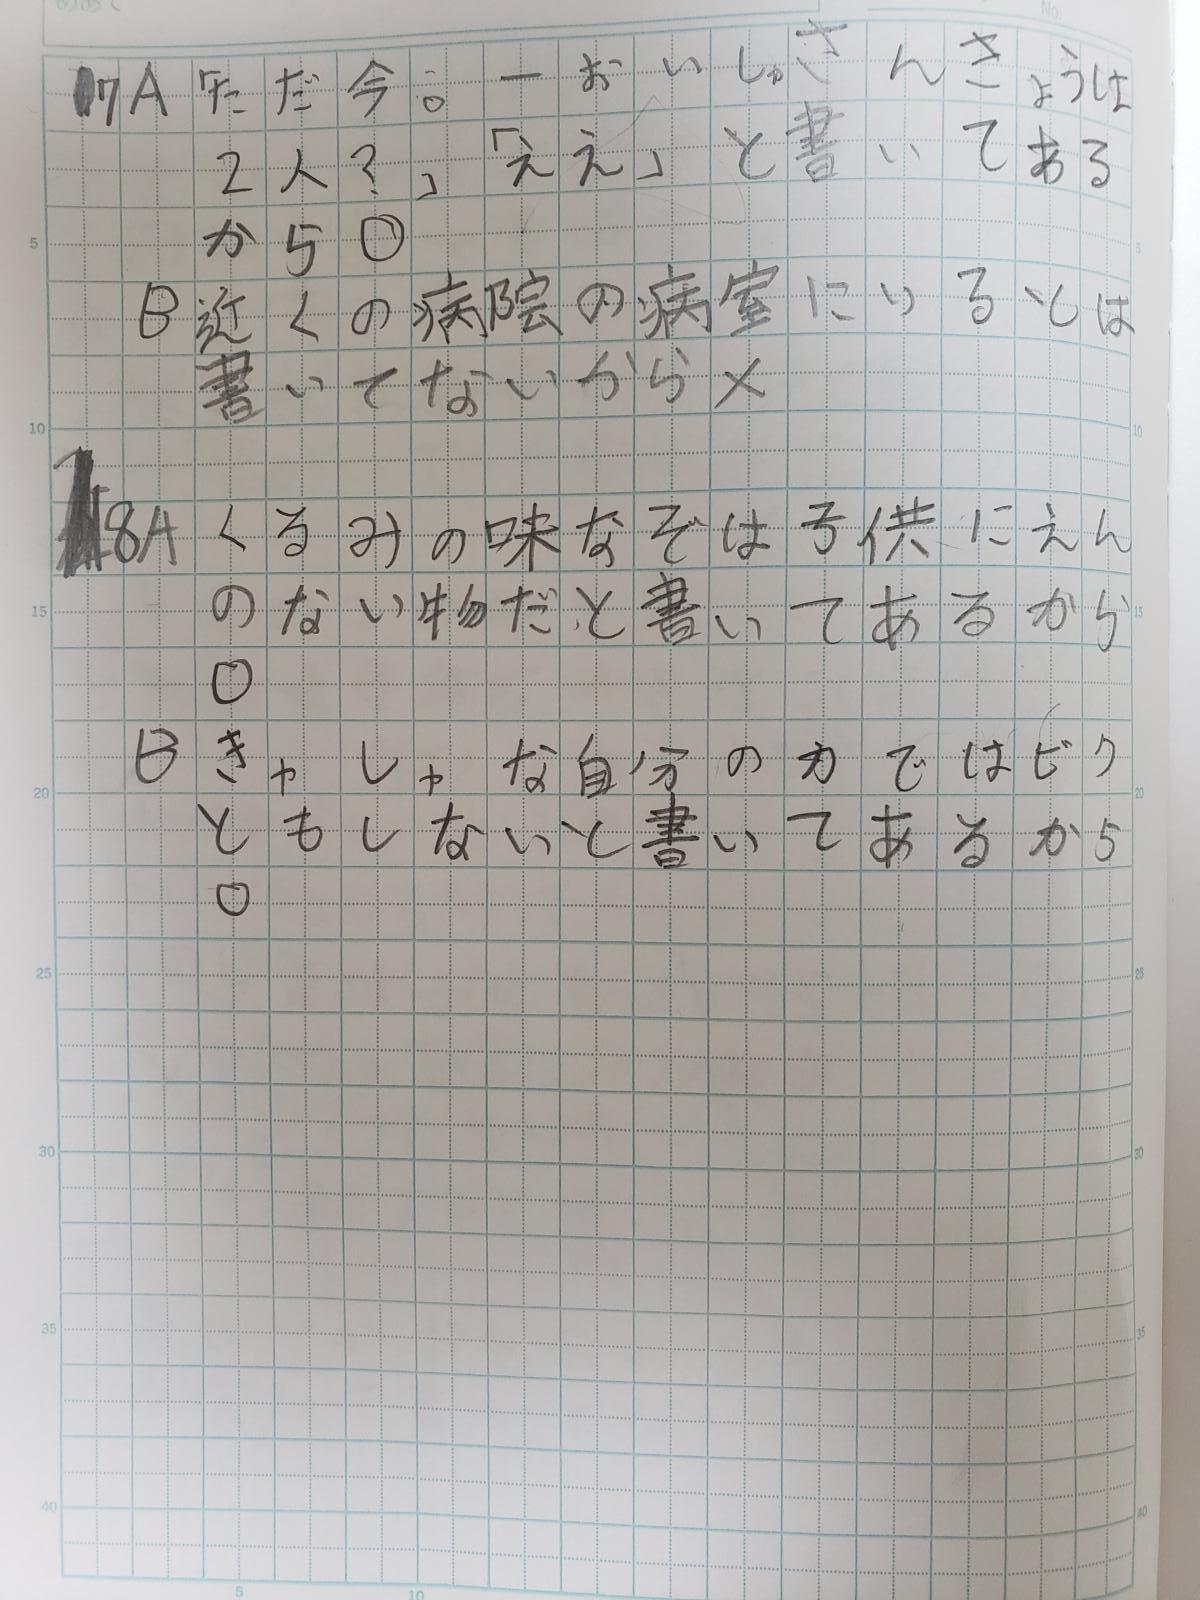 No.
17A「ただ今。ーおいしゃさんきょうは
2人?」「ええ」と書いてある
から○
B近くの病院の病室にいるとは
書いてないから×
18Aくるみの味なぞは子供にえん
のない物だと書いてあるから
○
Bきゃしゃな自分の力ではビク
ともしないと書いてあるから
○
5
10
15
20
25
30
35
40
5
10
15
20
25
30
35
40
5
10